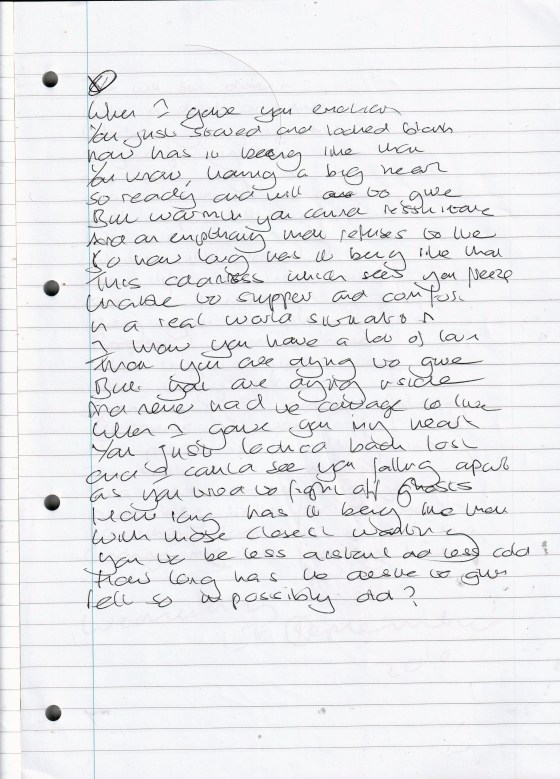 When I gave you emotion
You just stared and looked blank
how has it being like that
You know, having a big heart
So ready and will to give
But warmth you cannot resuscitate
And an empthany that refuses to live
So how long has it being like that
This coldness which sees you freeze
Unable to support and comfort
in a real world situation
I know you have a lot of love
That you are dying to give
But you are dying inside
And never had the courage to live
When I gave you my heart
You just looked back lost
and I could see you falling apart
as you tried to fight off ghosts
How long has it being like that
With those closest wanting
you to be less distant and less cold
How long has the desire to give
felt so impossibly old?